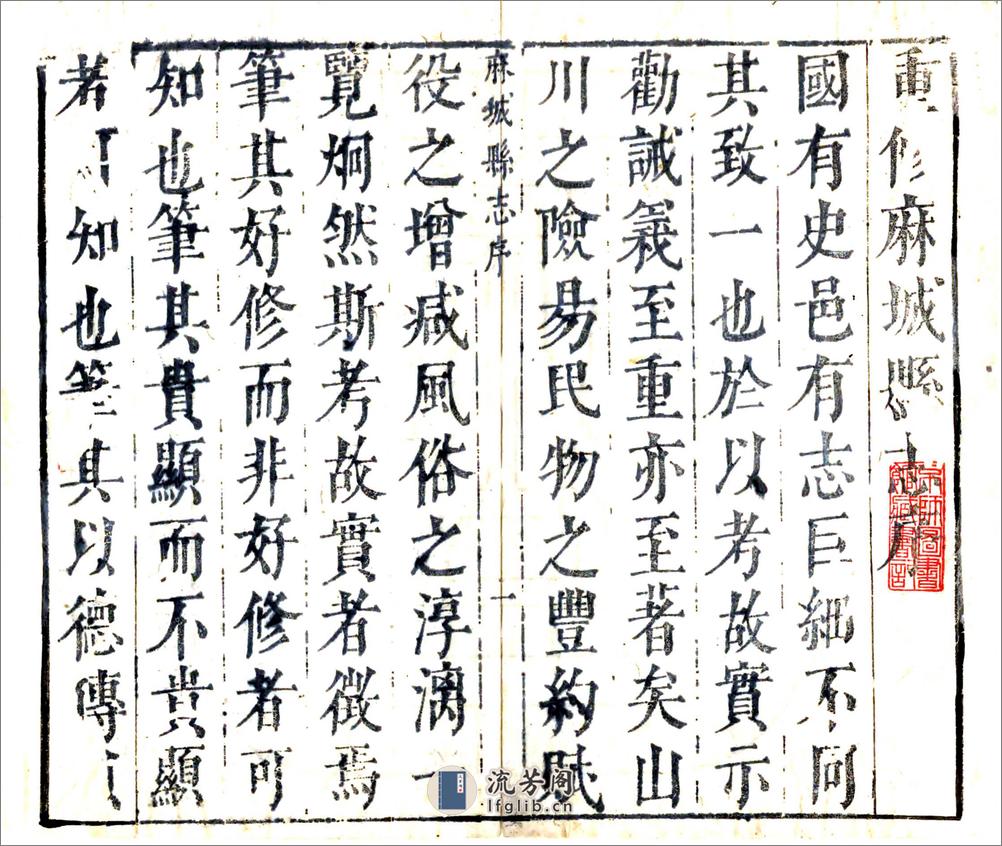 重修麻城縣志序
京師圖書
館藏書記
國有史邑有志巨細不同
其致一也於以考故實示
勸誡義至重亦至著矣山
川之險易民物之豐約賦
麻城縣志序 一
役之增減風俗之淳漓一
覽炯然斯考故實者徵焉
筆其好修而非好修者可
知也筆其貴顯而不貴顯
者可知也筆其以德傳
流芳阁
lfglib.cn